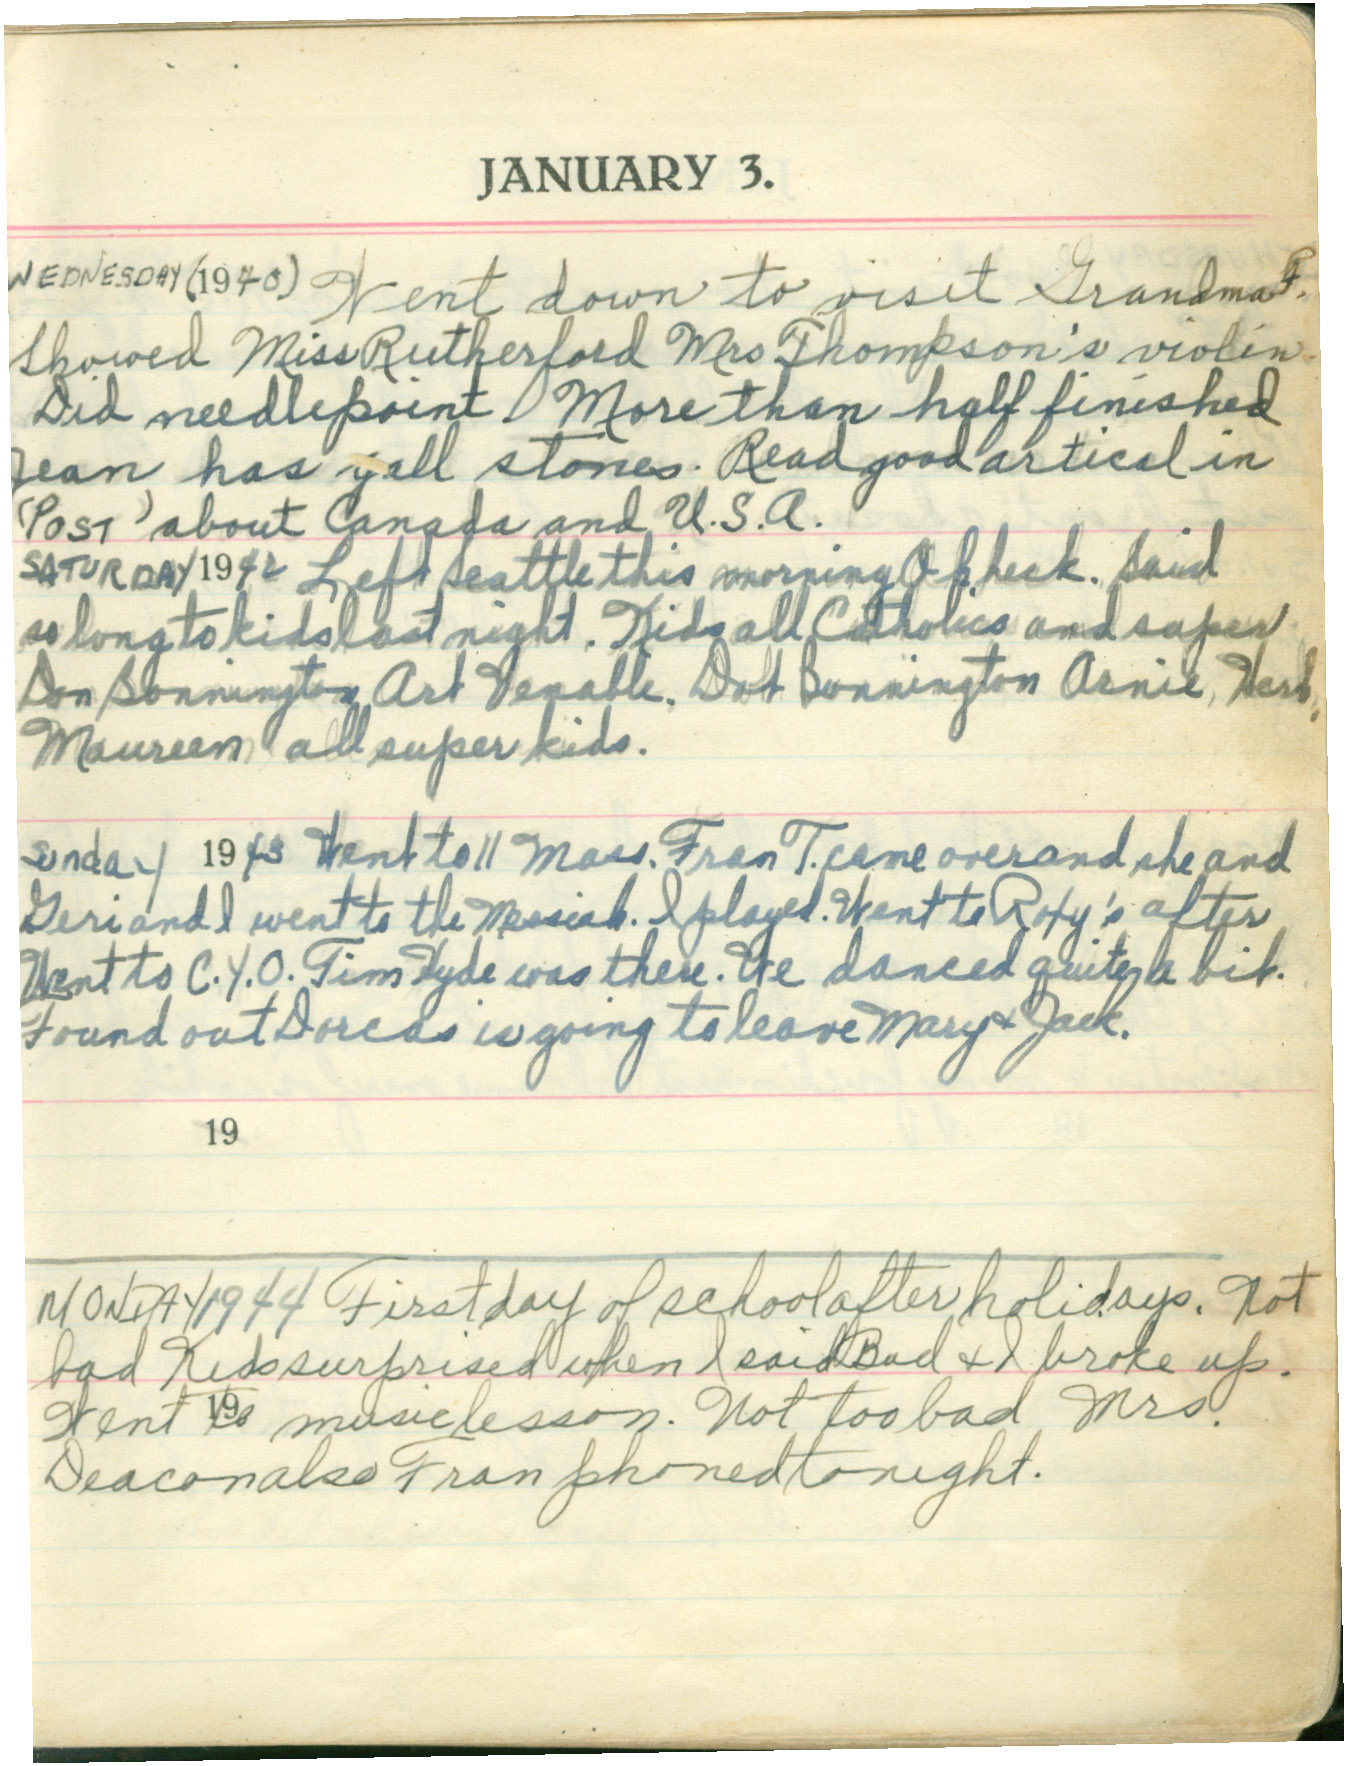 JANUARY 3.
WEDNESDAY (1940) Went down to visit Grandma F.
Showed Miss Rutherford Mrs Thompson's violin.
Did needlepoint. More than half finished
Jean has gall stones. Read good artical in
'POST' about Canada and U.S.A.
SATURDAY 1942 Left Seattle this morning O heck. Said
so long to kids last night. Kids all Catholics and super
Don Bonnington, Art Venable. Dot Bonnington Arnie, Herb,
Maureen all super kids.
Sunday 1943 Went to 11 Mass. Fran T. came over and she and
Geri and I went to the Messiah. I played. Went to Roxy's after
Went to C.Y.O. Tim Hyde was there. We danced quite a bit.
Found out Dorcas is going to leave Mary & Jack.
19
MONDAY 1944 First day of school after holidays. Not
bad Kids surprised when I said Bud & I broke up.
Went 19 to music lesson. Not too bad Mrs.
Deacon also Fran phoned tonight.